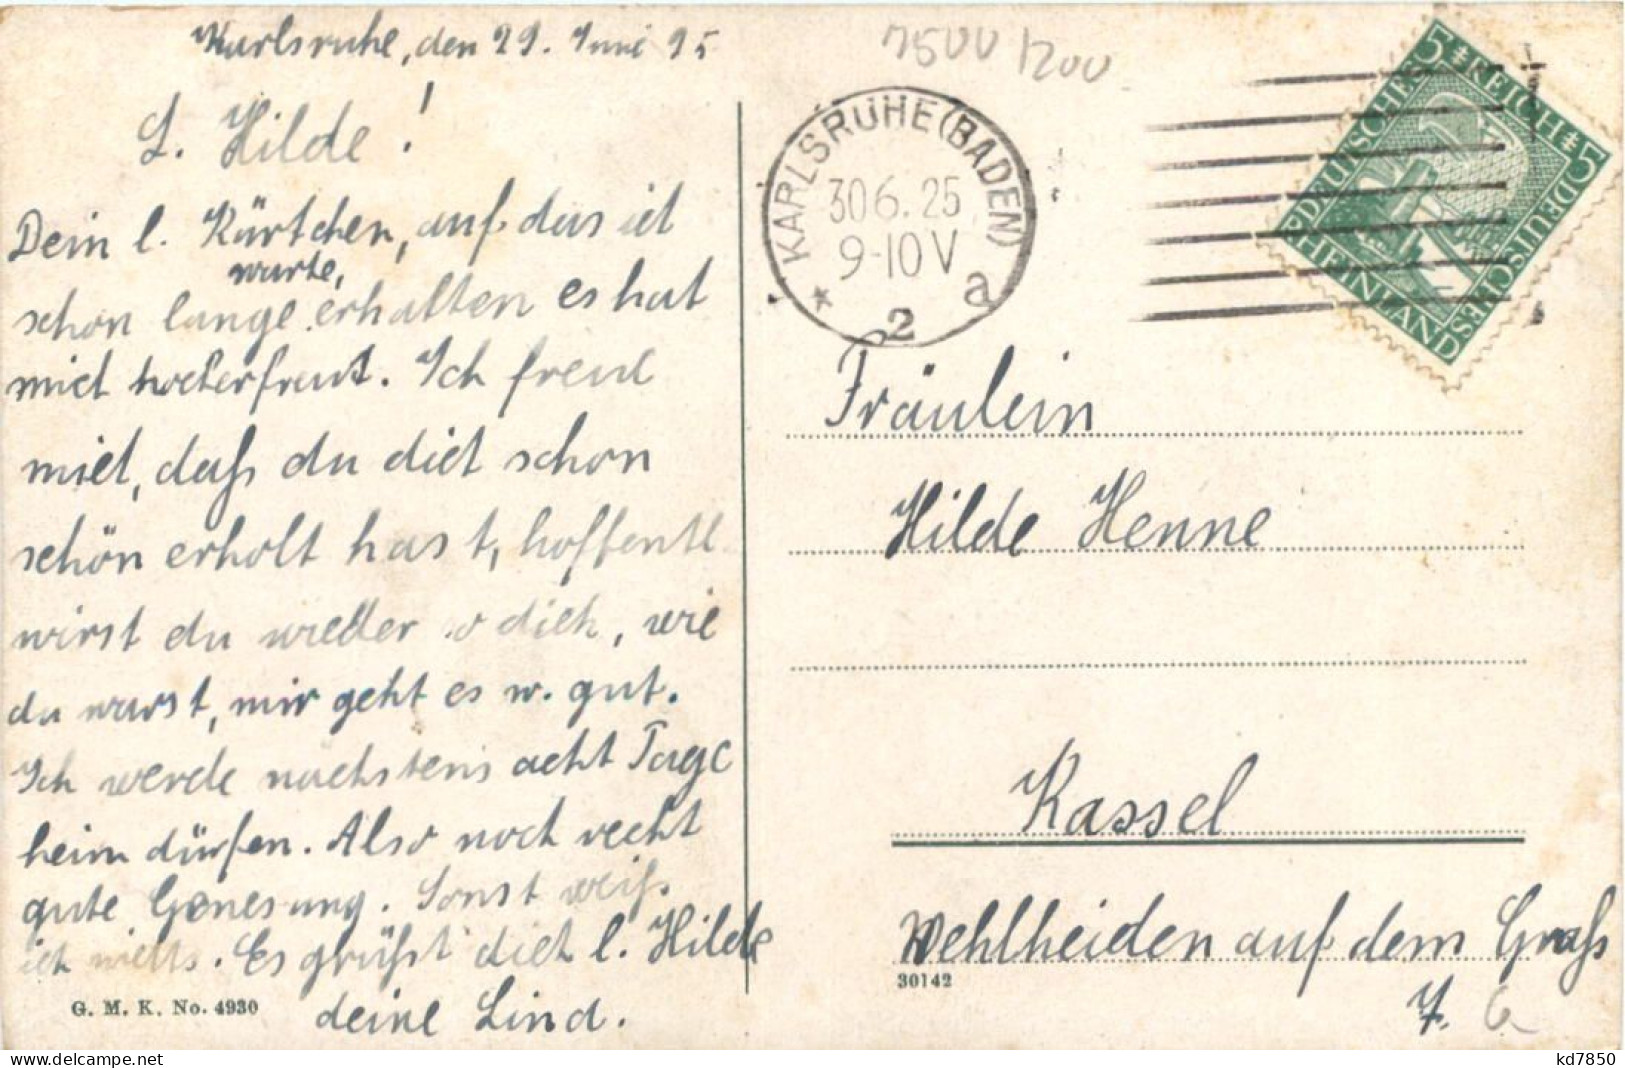 Karlsruhe, den 29. Juni 25
L. Hilde!
Dein l. Kärtchen, auf das ich
warte,
schon lange erhalten es hat
mich hocherfreut. Ich freue
mich, daß du dich schon
schön erholt hast, hoffentl.
wirst du wieder so dick, wie
du warst, mir geht es w. gut.
Ich werde nächstens acht Tage
heim dürfen. Also noch recht
gute Genesung. Sonst weiß
ich nichts. Es grüßt dich l. Hilde
deine Lind.
G. M. K. No. 4930
7500 1200
KARLSRUHE (BADEN)
30 6. 25
9-10 V
* 2 a
5 REICH 5
DEUTSCHES DEUTSCHES
RHEINLAND
Fräulein
Hilde Henne
Kassel
Wehlheiden auf dem Graß
30142
7. 6
kd7850